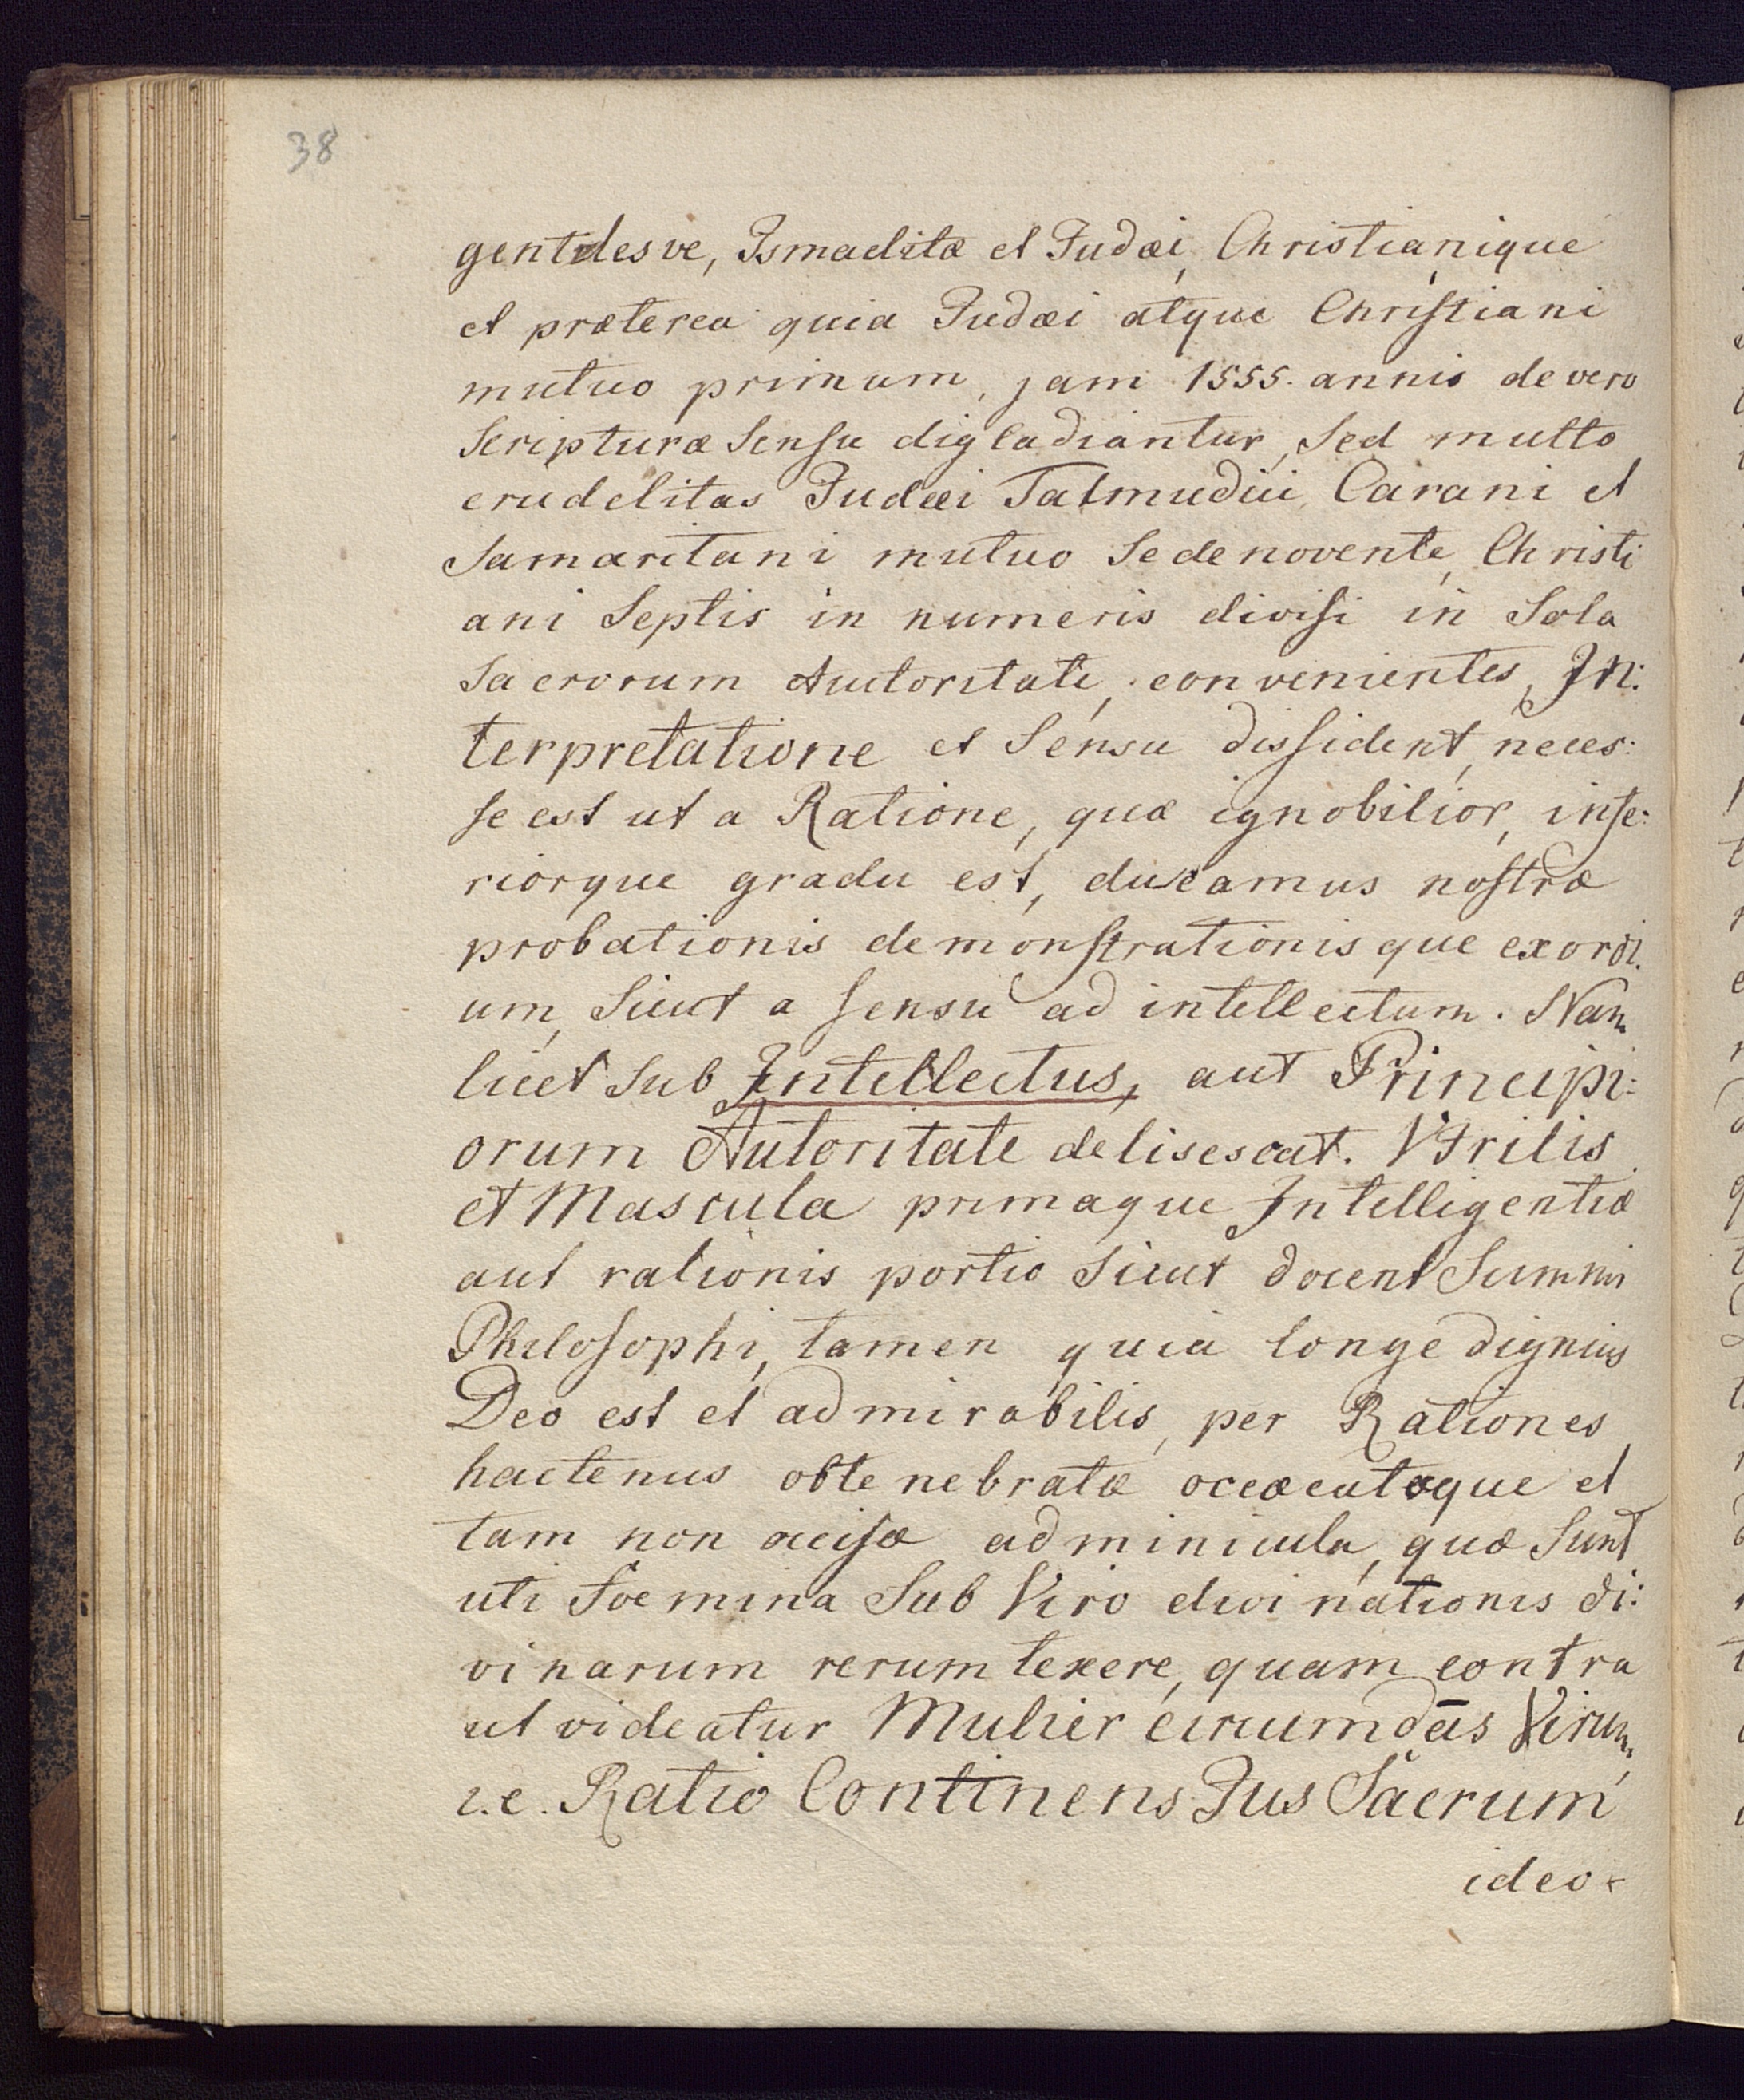 38
gentdesve, Ismaelitæ et Judæi, Christianique
et præterea quia Judæi atque Christiani
mutuo primum, jam 1555. annis de vero
Scripturæ Sensu digladiantur, Sed multo
crudelitas Judæi Talmudici, Carani et
Samaritani mutuo Sedenovente, Christi
ani Septis in numeris divisi in Sola
Sacrorum Auctoritate, convenientes, In:
terpretatione et Sensu dissident, neces:
se est ut a Ratione, quæ ignobilior, infe:
riorque gradu est, ducamus nostræ
probationis demonstrationisque exordi.
um, Sicut a sensu ad intellectum. Nam
licet Sub Intellectus, aut Principi:
orum Autoritate delisescat. Virilis
et Mascula primaque Intelligentiæ
aut rationis portio Sicut docent Summi
Philosophi, tamen quia longe dignius
Deo est et admirabilis, per Rationes
hactenus obtenebratæ occæcatæque et
tam non occisæ adminicula, quæ Sunt
uti Foemina Sub Viro divinationis di:
vinarum rerum texere, quam contra
ut videatur Mulier circumdās Virum,
i.e. Ratio Continens Jus Sacrum
ideo